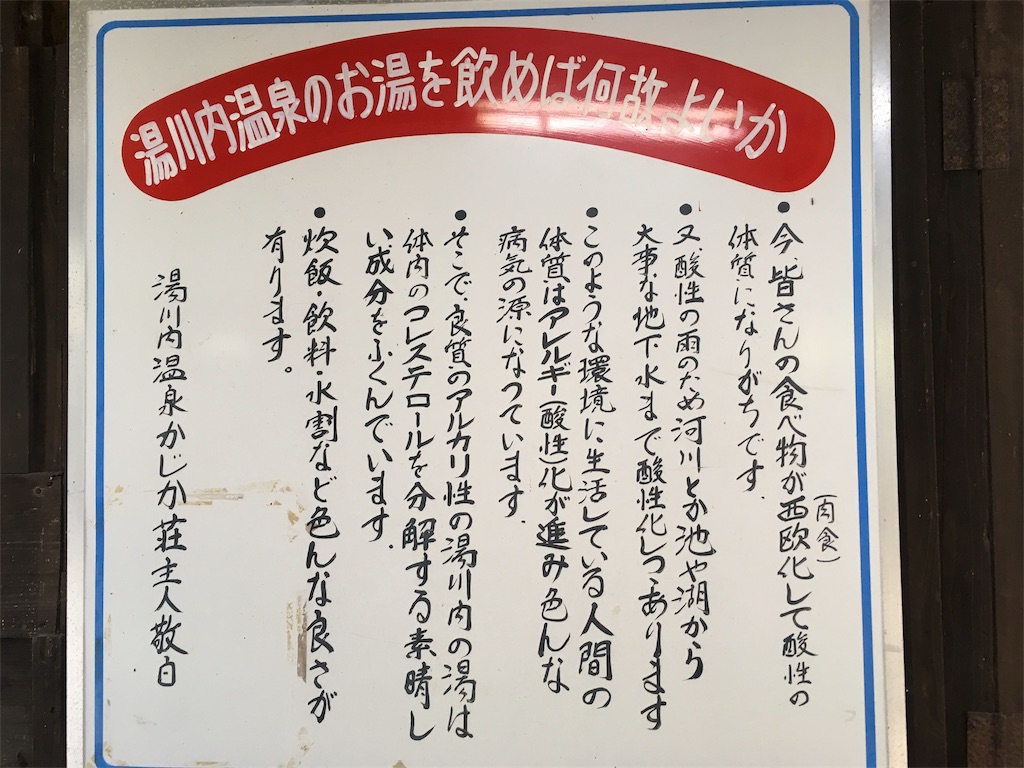 湯川内温泉のお湯を飲めば何故よいか
•今、皆さんの食べ物が西欧化して酸性の
(肉食)
体質になりがちです.
•又、酸性の雨のため河川とか池や湖から
大事な地下水まで酸性化しつゝあります
•このような環境に生活している人間の
体質はアレルギー(酸性)化が進み色んな
病気の源になっています.
•そこで、良質のアルカリ性の湯川内の湯は
体内のコレステロールを分解する素晴し
い成分をふくんでいます.
•炊飯・飲料・水割など色んな良さが
有ります。
湯川内温泉かじか荘主人敬白